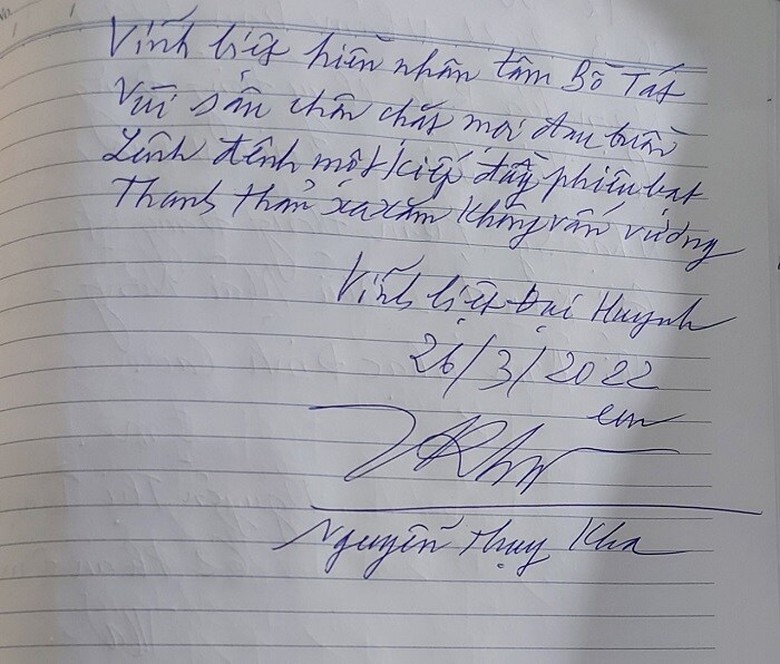 Vĩnh biệt hiền nhân tâm Bồ Tát
Vùi sâu chôn chặt mọi đau buồn
Lênh đênh một kiếp đầy phiêu bạt
Thanh thản xa xăm không vấn vương
Vĩnh biệt Đại Huynh
26/3/2022
em
Nguyễn Thụy Kha